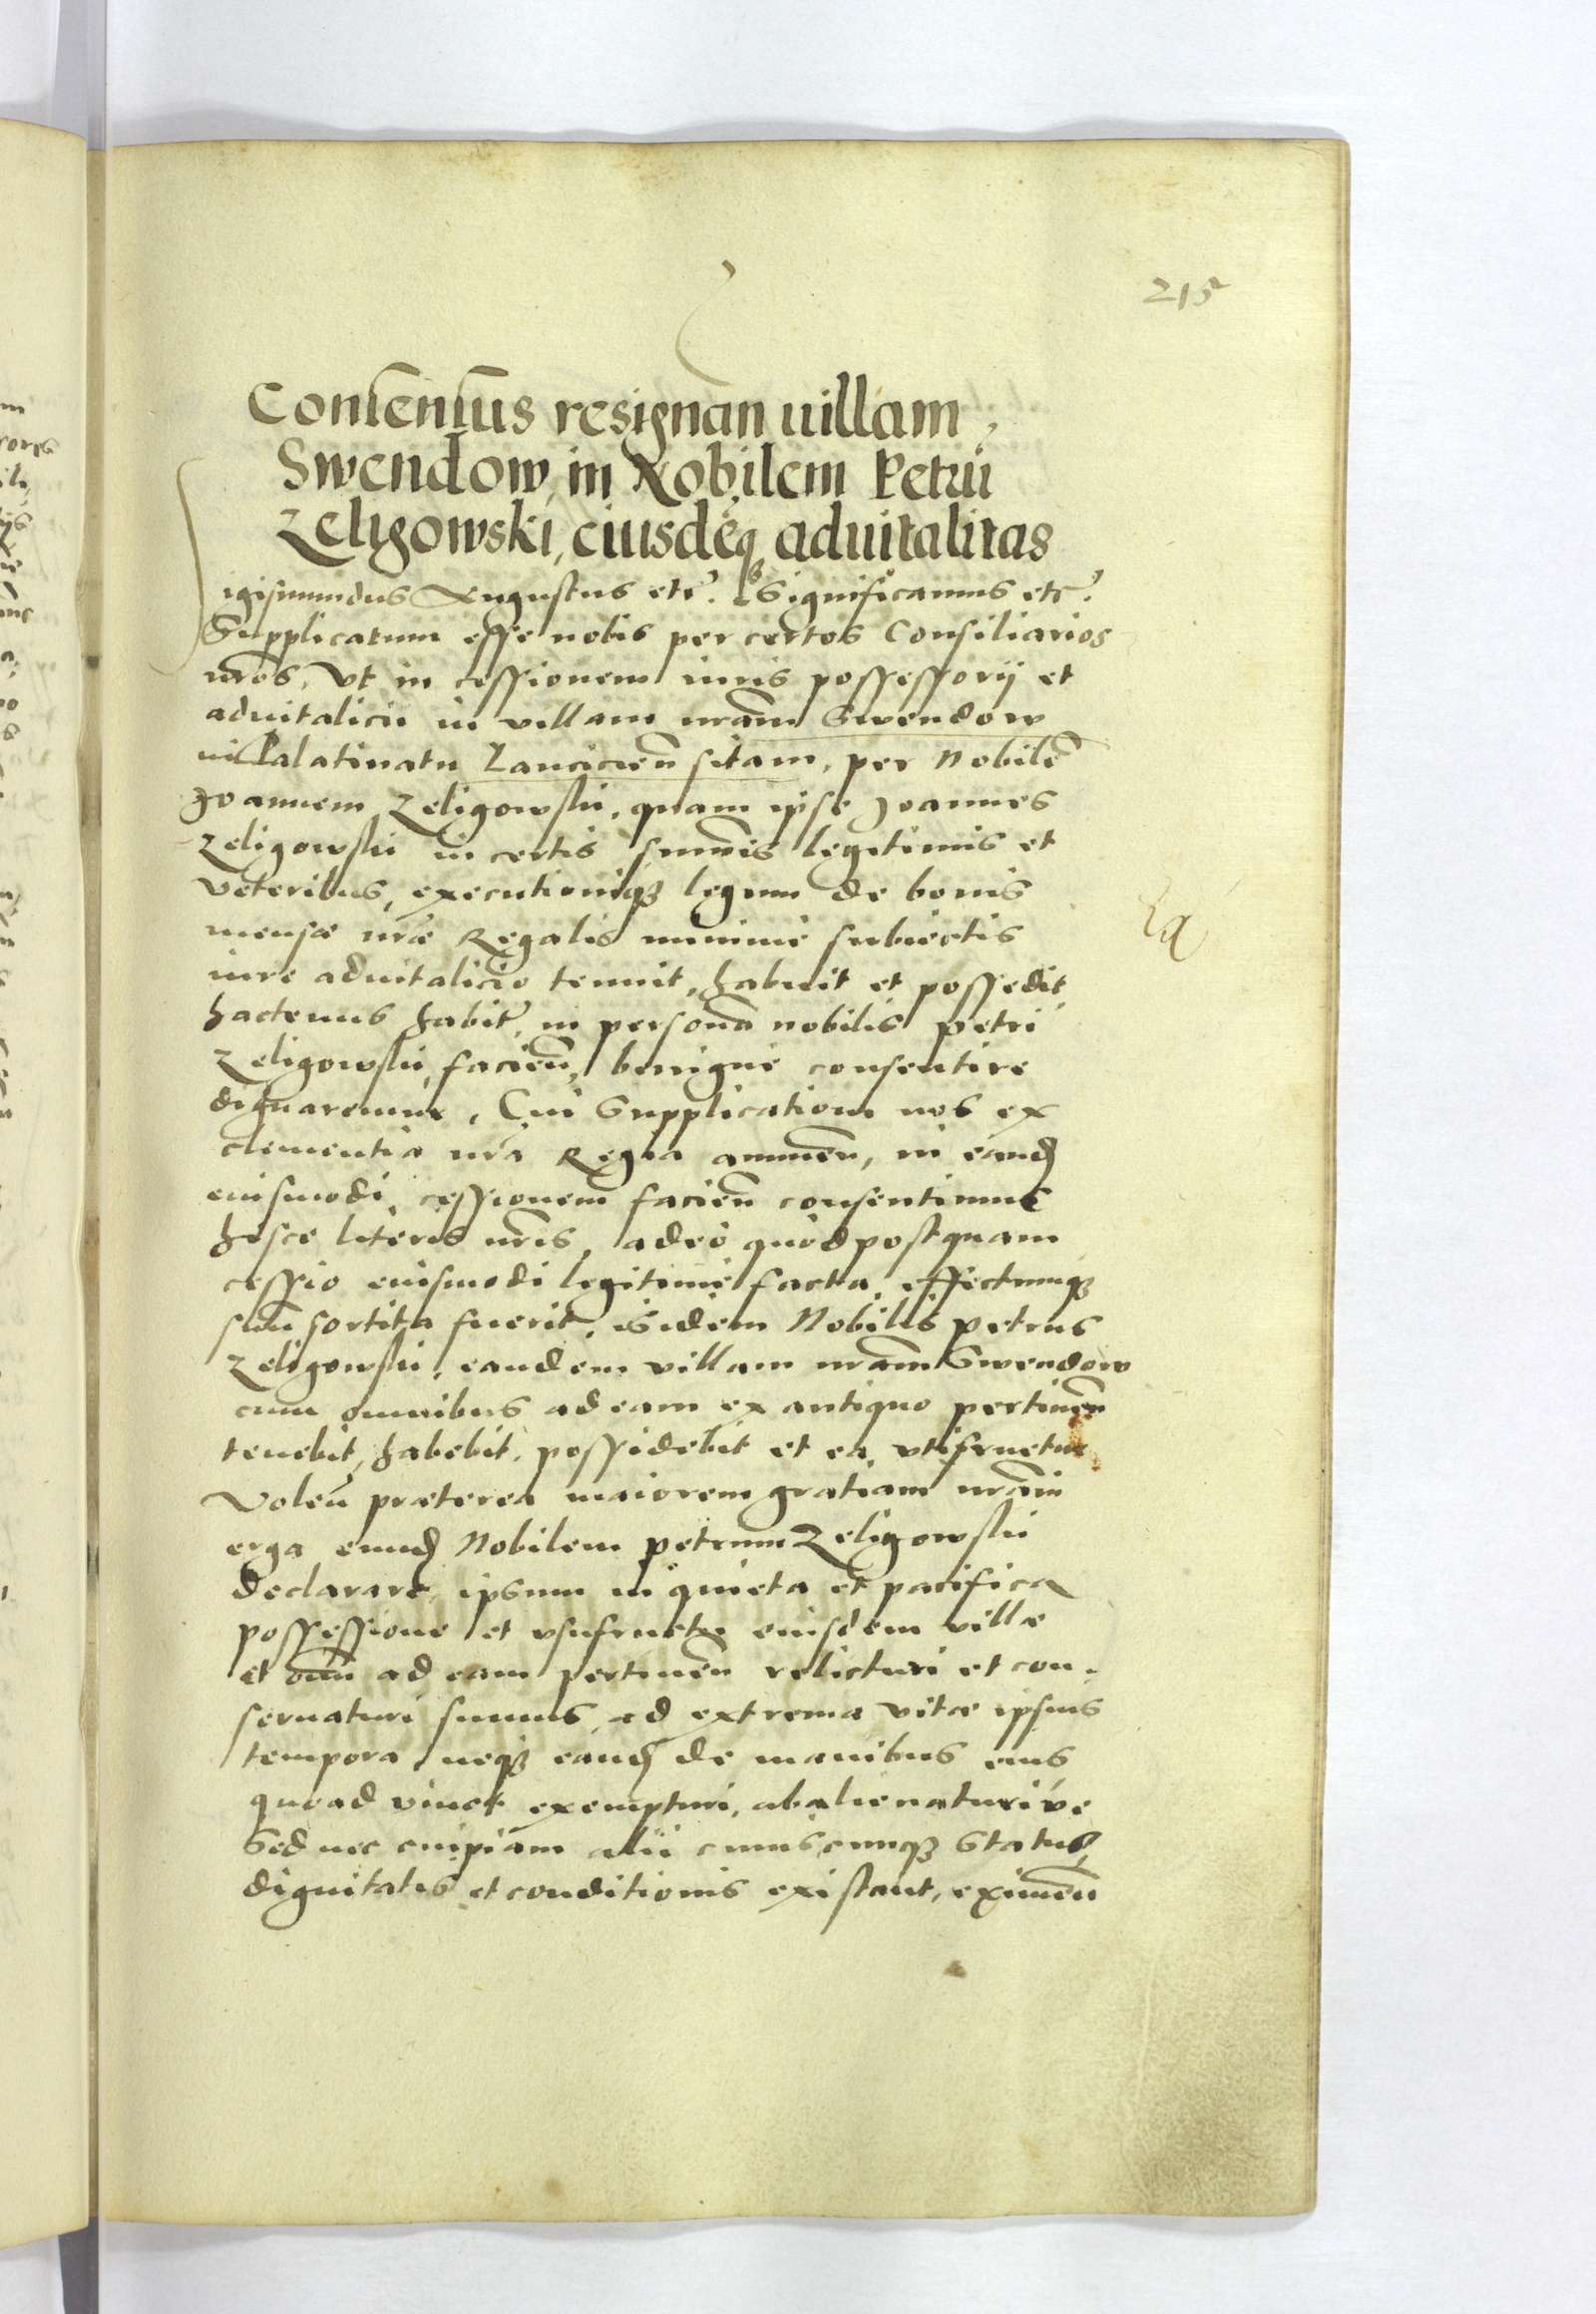 215
Consensus resignan̄ uillam,
Swendow, in Nobilem Petrū
Zeligowski, eiusdēq̨ aduitalitas
Sigismundus Augustus etc. Significamus etc.
Supplicatum esse nobis per certos Consiliarios
nr̄os, vt in cessionem iuris possessorij et
aduitalicii in villam nr̄am Swendow
in Palatinatu Lancicien̄ sitam, per Nobilē
Joannem Zeligowski, quam ipse Joannes
Zeligowski in certis sum̄is legitimis et
veteribus, executioniq̨ legum de bonis
mensæ nr̄æ Regalis minimè subiectis
iure aduitalicio tenuit, habuit et possedit
hactenus habit̃, in personā nobilis Petri
Zeligowski, facien̄, benignè consentire
dignaremur, Cui Supplicationi nos ex
clementia nr̄a Regia annuen̄, in eand̨
eiusmodi cessionem facien̄ consentimus
hisce literis nr̄is, adeò quòd postquam
cessio eiusmodi legitimè facta, effectumq̨
suū sortita fuerit, isidem Nobilis Petrus
Zeligowski, eandem villam nr̄am Swendow
cum omnibus ad eam ex antiquo pertinen̄
tenebit, habebit, possidebit et ea vtifruetur
Volen̄ præterea maiorem gratiam nr̄am
erga eund̨ Nobilem Petrum Zeligowski
declarare, ipsum in quieta et pacifica
possessione et vsufructu eiusdem villæ
et om̄i ad eam pertinen̄ relicturi et con-
seruaturi sumus, ad extrema vitæ ipsius
tempora, neq̨ eand̨ de manibus eius
quoad viuet exempturi, abalienaturive
Sed nec cuipiam alii cuiuscunq̨ Status,
dignitatis et conditionis existant, eximen̄